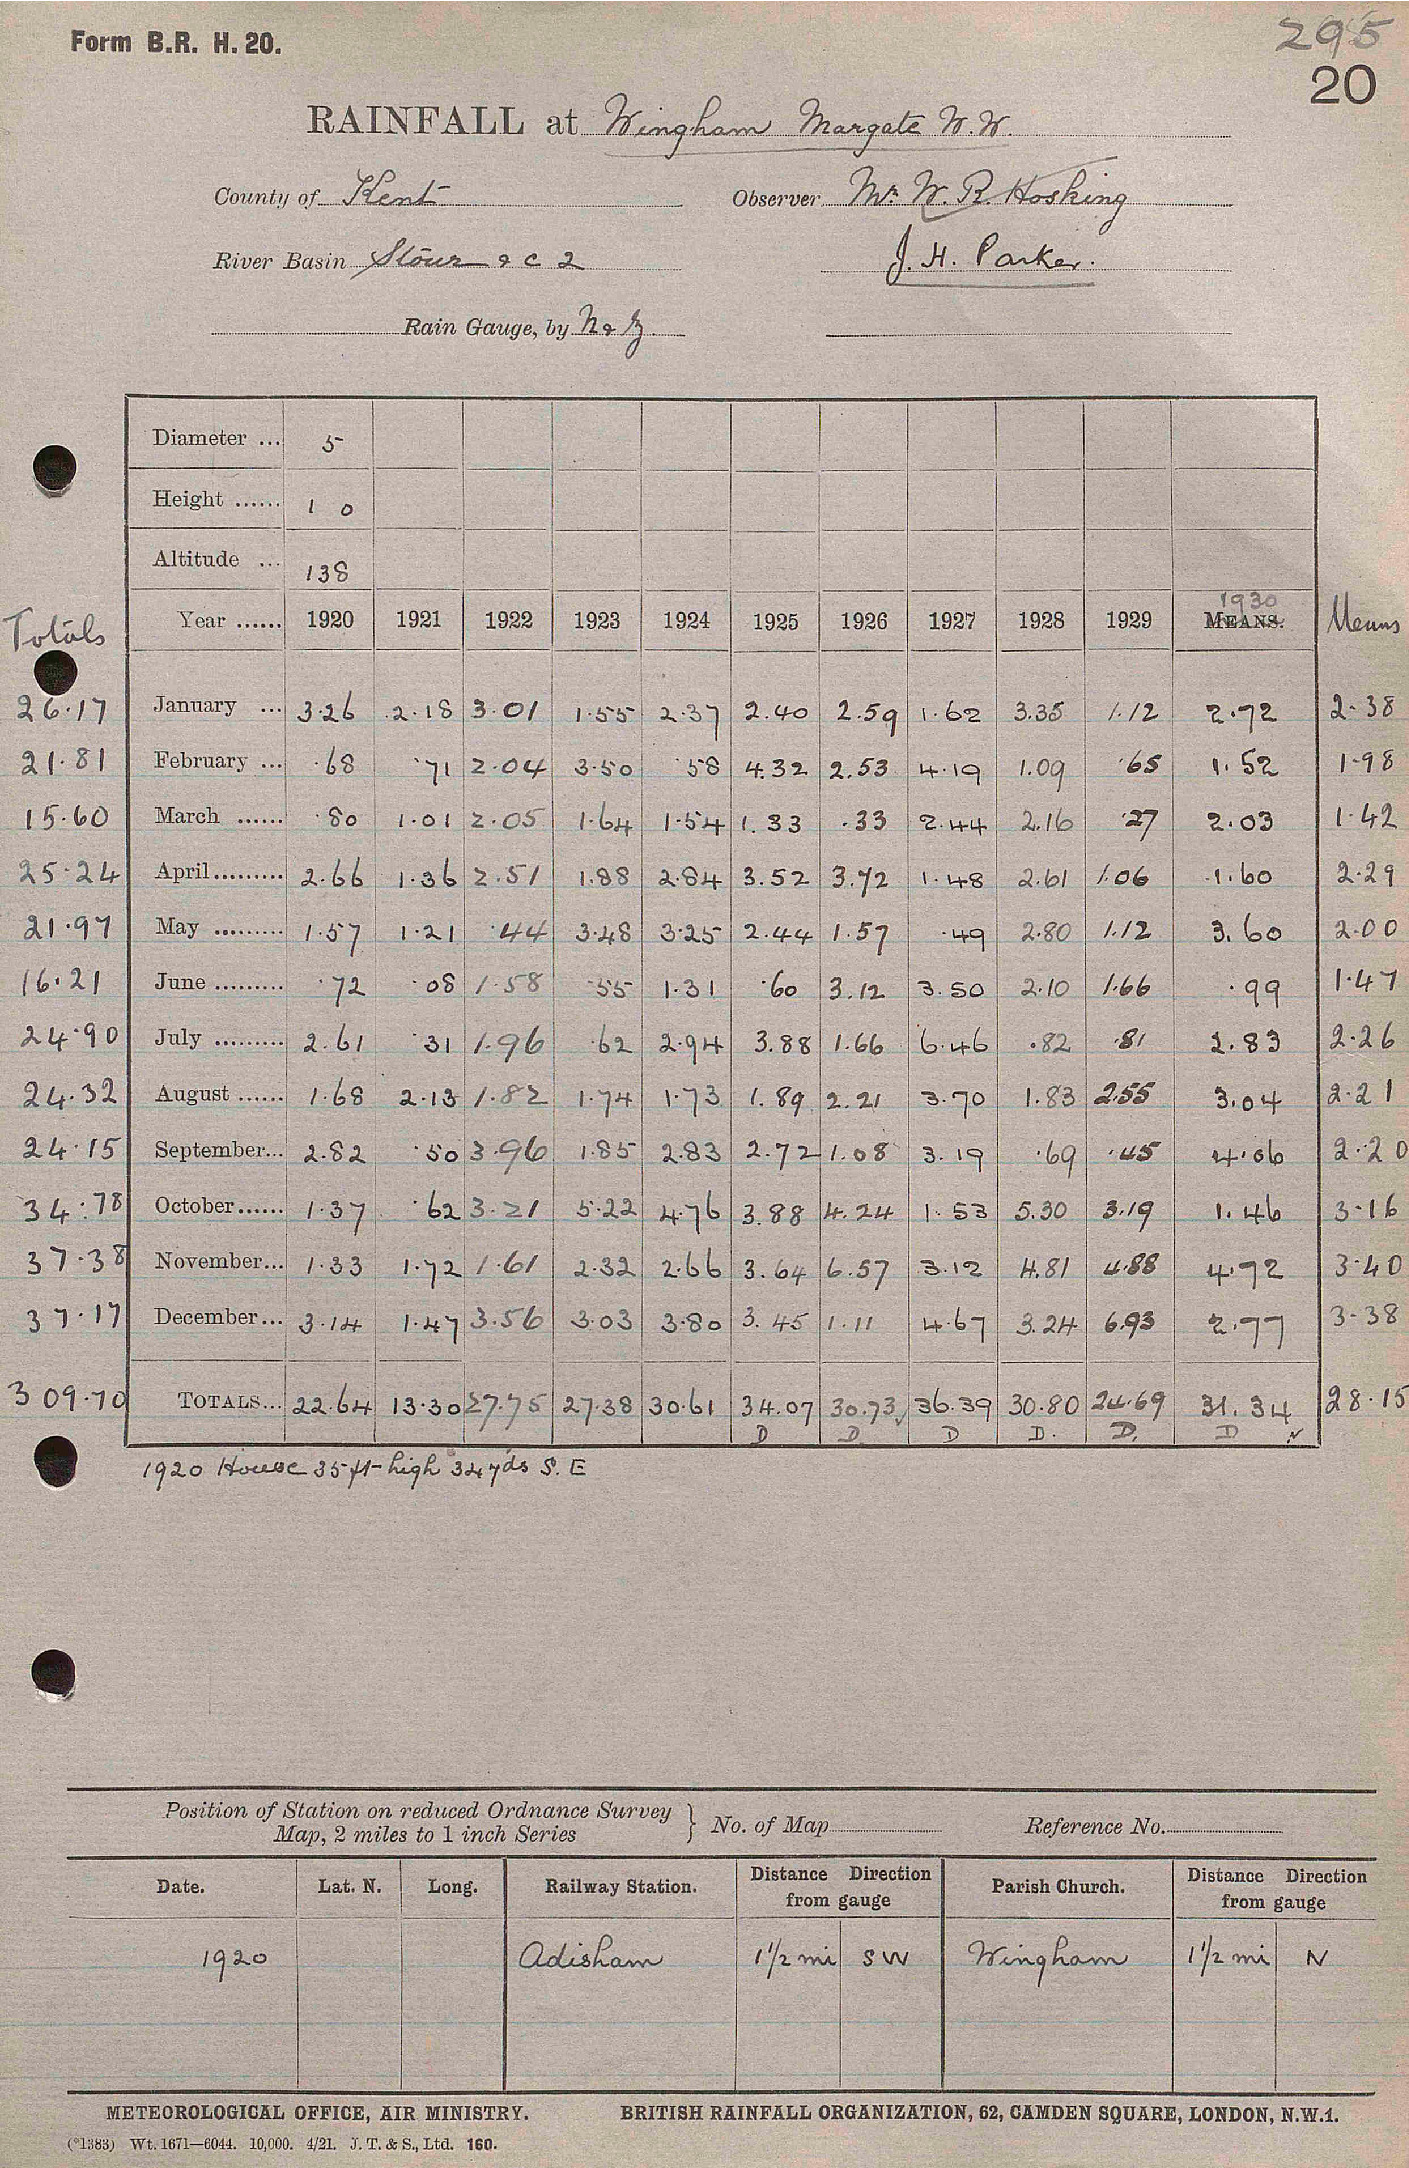 Form B.R. H. 20.
295
20
RAINFALL at Wingham Margate W.W.
County of Kent Observer Mr. W. R. Hosking
River Basin Stour & C 2 J. H. Parker.
Rain Gauge, by N & Z
Diameter ... 5
Height ...... 1 0
Altitude ... 138
Totals Year ...... 1920 1921 1922 1923 1924 1925 1926 1927 1928 1929 1930 MEANS. Means
26.17 January ... 3.26 2.18 3.01 1.55 2.37 2.40 2.59 1.62 3.35 1.12 2.72 2.38
21.81 February ... .68 .71 2.04 3.50 .58 4.32 2.53 4.19 1.09 .65 1.52 1.98
15.60 March ...... .80 1.01 2.05 1.64 1.54 1.33 .33 2.44 2.16 .27 2.03 1.42
25.24 April ......... 2.66 1.36 2.51 1.88 2.84 3.52 3.72 1.48 2.61 1.06 1.60 2.29
21.97 May ......... 1.57 1.21 .44 3.48 3.25 2.44 1.57 .49 2.80 1.12 3.60 2.00
16.21 June ......... .72 .08 1.58 .55 1.31 .60 3.12 3.50 2.10 1.66 .99 1.47
24.90 July ......... 2.61 .31 1.96 .62 2.94 3.88 1.66 6.46 .82 .81 2.83 2.26
24.32 August ...... 1.68 2.13 1.82 1.74 1.73 1.89 2.21 3.70 1.83 2.55 3.04 2.21
24.15 September... 2.82 .50 3.96 1.85 2.83 2.72 1.08 3.19 .69 .45 4.06 2.20
34.78 October...... 1.37 .62 3.21 5.22 4.76 3.88 4.24 1.53 5.30 3.19 1.46 3.16
37.38 November... 1.33 1.72 1.61 2.32 2.66 3.64 6.57 3.12 4.81 4.88 4.72 3.40
37.17 December... 3.14 1.47 3.56 3.03 3.80 3.45 1.11 4.67 3.24 6.93 2.77 3.38
309.70 TOTALS... 22.64 13.30 27.75 27.38 30.61 34.07 30.73 36.39 30.80 24.69 31.34 28.15
D D D D. D. D N
1920 House 35 ft high 34 yds S. E
Position of Station on reduced Ordnance Survey Map, 2 miles to 1 inch Series } No. of Map Reference No.
Date. Lat. N. Long. Railway Station. Distance Direction from gauge Parish Church. Distance Direction from gauge
1920 Adisham 1 1/2 mi S W Wingham 1 1/2 mi N
METEOROLOGICAL OFFICE, AIR MINISTRY. BRITISH RAINFALL ORGANIZATION, 62, CAMDEN SQUARE, LONDON, N.W.1.
(*1383) Wt. 1671—6044. 10,000. 4/21. J. T. & S., Ltd. 160.